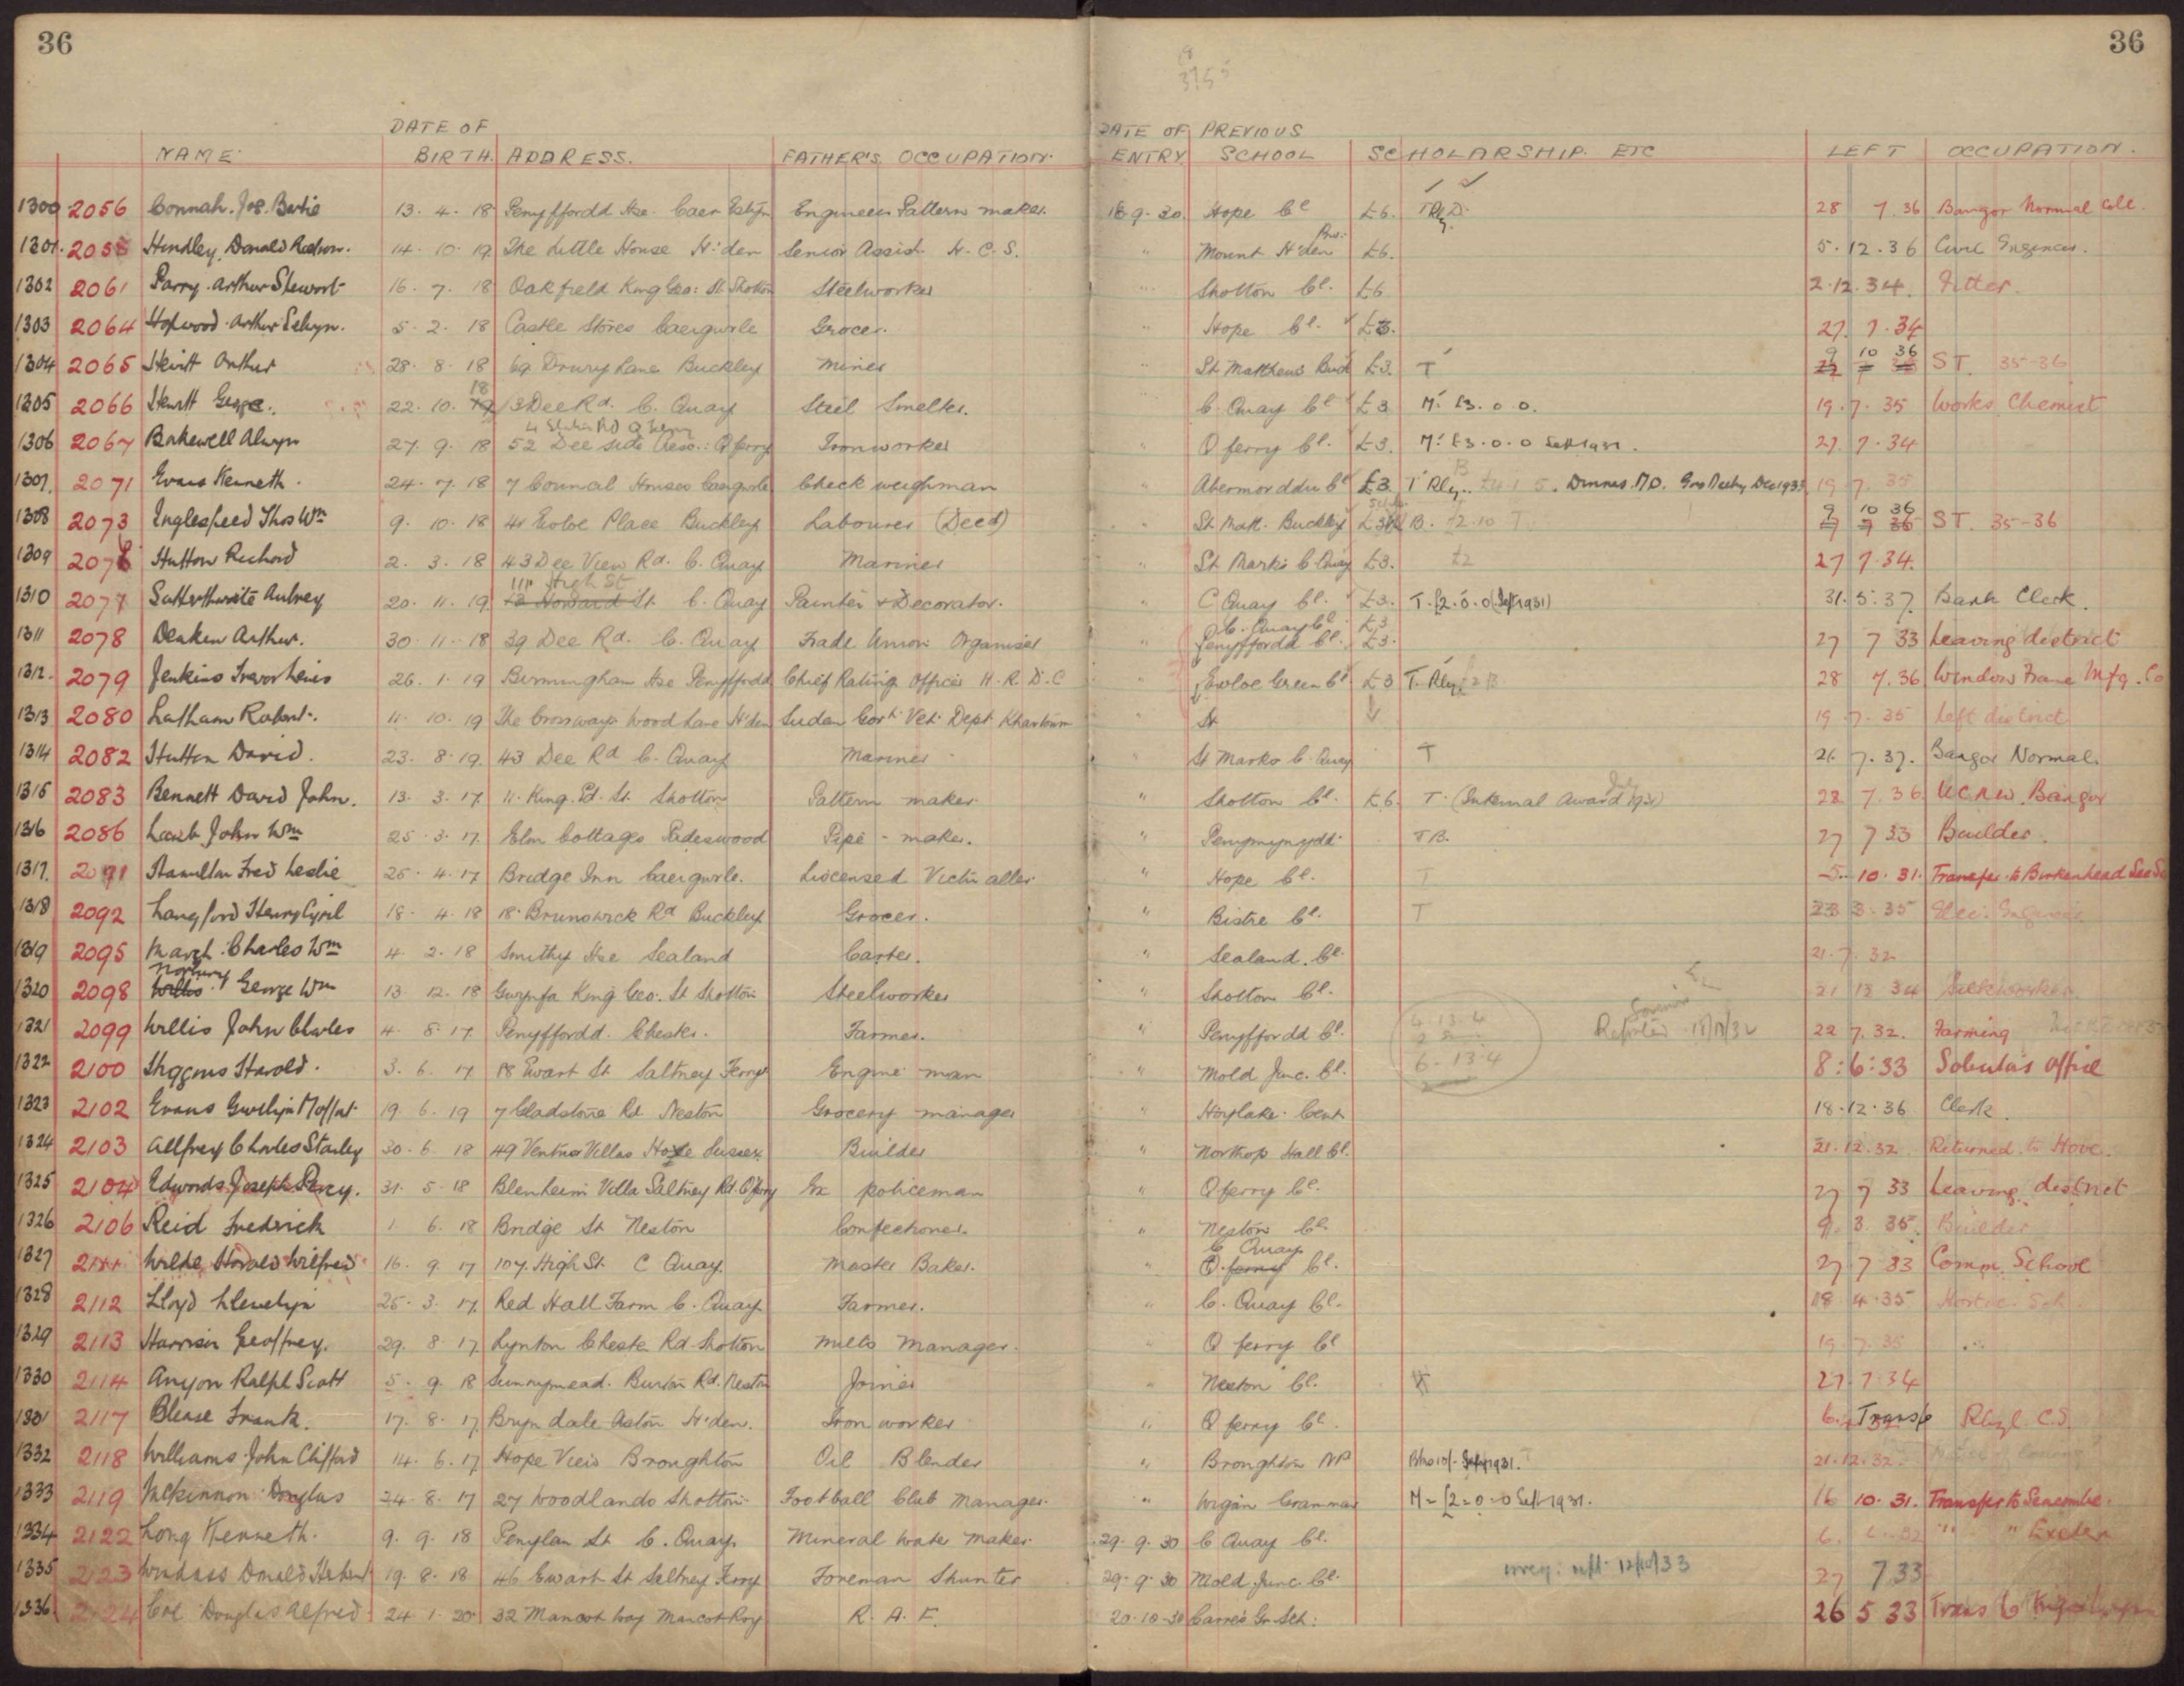 36
36
DATE OF
DATE OF PREVIOUS
NAME BIRTH. ADDRESS. FATHER'S OCCUPATION. ENTRY SCHOOL SCHOLARSHIP. ETC LEFT OCCUPATION.
1300 2056 Connah. Jos. Bertie 13. 4. 18 Penyffordd Hse. Caer Estyn Engineers Pattern maker. 16. 9. 30. Hope Cl £6. 28 7. 36 Bangor Normal Coll.
1301. 2058 Hindley, Donald 14. 10. 19 The Little House H'den Senior Assist. H. C. S. " Mount H'den £6. 5. 12. 36 Civil Engineer.
1302 2061 Parry. Arthur Stewart 16. 7. 18 Oakfield King Geo: St. Shotton Steelworker " Shotton Cl. £6 2. 12. 34. Fitter.
1303 2064 Hopwood. Arthur Selwyn. 5. 2. 18 Castle Stores Caergwrle Grocer. " Hope Cl. £3. 27. 7. 34
1304 2065 Hewitt Arthur 28. 8. 18 69 Drury Lane Buckley Miner " St. Matthews Buck £3. T 9 10 36 ST. 35-36
1305 2066 Hewitt George. 22. 10. 18 13 Dee Rd. C. Quay Steel Smelter. " C. Quay Cl £3 M. £3. 0. 0. 19. 7. 35 Works Chemist
1306 2067 Bakewell Alwyn 27. 9. 18 52 Dee side Q ferry Ironworker " Q ferry Cl. £3. M. £3. 0. 0 Sept 1931. 27. 7. 34
1307. 2071 Evans Kenneth. 24. 7. 18 7 Council Houses Caergwrle Check weighman " Abermorddu Cl £3 T Rly. Dinners. 19. 7. 35
1308 2073 Inglespeed Thos Wm 9. 10. 18 Ewloe Place Buckley Labourer (Decd) " St. Matt. Buckley B. £2. 10 T. 9 10 36 ST. 35-36
1309 Hutton Richard 2. 3. 18 43 Dee View Rd. C. Quay Mariner " St. Marks C. Quay £3. £2 27 7. 34.
1310 2077 Satterthwaite Aubrey 20. 11. 19 111 High St C. Quay Painter & Decorator. " C Quay Cl. £3. T. £2. 0. 0 (Sept 1931) 31. 5. 37. Bank Clerk.
1311 2078 Deakin Arthur. 30. 11. 18 39 Dee Rd. C. Quay Trade Union Organiser " C. Quay Cl Penyffordd Cl. £3. 27 7 33 Leaving district
1312. 2079 Jenkins Trevor Lewis 26. 1. 19 Birmingham Hse Penyffordd Chief Rating Officer H. R. D. C " Ewloe Green Cl £3 T. Rly. 28 7. 36 Window Frame Mfg. Co
1313 2080 Latham Robert. 11. 10. 19 The Crossways Wood Lane H'den Sudan Govt. Vet. Dept Khartoum " 19. 7. 35 Left district
1314 2082 Hutton David. 23. 8. 19. 43 Dee Rd C. Quay Mariner " St Marks C. Quay T 26. 7. 37. Bangor Normal.
1315 2083 Bennett David John. 13. 3. 17 11. King. Ed. St. Shotton Pattern maker " Shotton Cl. £6. T. (Internal Award July 1931) 28 7. 36. U.C.N.W. Bangor
1316 2086 Lamb John Wm 25. 3. 17. Elm Cottages Padeswood Pipe - maker. " Penymynydd TB. 27 7 33 Builder.
1317. 2091 Hamilton Fred Leslie 25. 4. 17 Bridge Inn Caergwrle. Licensed Victualler " Hope Cl. T 5. 10. 31. Transfer to Birkenhead
1318 2092 Langford Henry Cyril 18. 4. 18 18. Brunswick Rd Buckley Grocer. " Bistre Cl. T 3. 35 Elec: Engineer
1319 2095 March. Charles Wm 4. 2. 18 Smithy Hse Sealand Carter. " Sealand. Cl. 21. 7. 32
1320 2098 Norbury George Wm 13. 12. 18 Gwynfa King Geo. St Shotton Steelworker " Shotton Cl. 21 12 34 Steelworker
1321 2099 Willis John Charles 4. 8. 17. Penyffordd. Chester. Farmer. " Penyffordd Cl. 4. 13. 4 6. 13. 4 Reported 22 7. 32. Farming
1322 2100 Higgins Harold. 3. 6. 17 18 Ewart St Saltney Ferry Engine man " Mold Junc. Cl. 8: 6: 33 Solicitors Office
1323 2102 Evans Gwilym Moffat 19. 6. 19 7 Gladstone Rd Neston Grocery manager " Hoylake Cent 18. 12. 36 Clerk.
1324 2103 Allfrey Charles Stanley 30. 6. 18 49 Ventnor Villas Hove Sussex. Builder " Northop Hall Cl. 21. 12. 32 Returned to Hove.
1325 2104 Edwards Joseph Percy. 31. 5. 18 Blenheim Villa Saltney Rd. Q'ferry Ex policeman " Q ferry Cl. 27 7 33 Leaving district
1326 2106 Reid Fredrick 1 6. 18 Bridge St Neston Confectioner. " Neston Cl. 9. 3. 35. Builder
1327 Wilde Harold Wilfred 16. 9. 17 107. High St. C Quay. Master Baker. " C Quay Q. ferry Cl. 27 7 33 Comm. School
1328 2112 Lloyd Llewelyn 25. 3. 17. Red Hall Farm C. Quay Farmer. " C. Quay Cl. 18. 4. 35
1329 2113 Harrison Geoffrey. 29. 8. 17 Lynton Chester Rd Shotton Mills Manager. " Q ferry Cl 19. 7. 35
1330 2114 Anyon Ralph Scott 5. 9. 18 Sunnymead. Burton Rd. Neston Joiner " Neston Cl. 27. 7. 34
1331 2117 Blease Frank. 17. 8. 17. Bryn dale Aston H'den. Iron worker " Q ferry Cl. 6. Transf Rhyl C.S.
1332 2118 Williams John Clifford 14. 6. 17 Hope View Broughton Oil Blender " Broughton NP 21. 12. 32.
1333 2119 McKinnon Douglas 24. 8. 17 27 Woodlands Shotton Football Club Manager. " Wigan Grammar M = £2=0=0 Sept 1931. 16 10. 31. Transfer to Seacombe.
1334 2122 Long Kenneth. 9. 9. 18 Penylan St C. Quay. Mineral Water Maker. 29. 9. 30 C Quay Cl. " " Exeter
1335 2123 Donald Herbert 19. 8. 18 46 Ewart St Saltney Ferry Foreman Shunter 29. 9. 30 Mold Junc. Cl. 27 7 33
1336 2124 Douglas Alfred. 24 1. 20 32 Mancot Way Mancot Roy R. A. F. 20. 10. 30 Carre's Gr. Sch. 26 5 33 Trans to